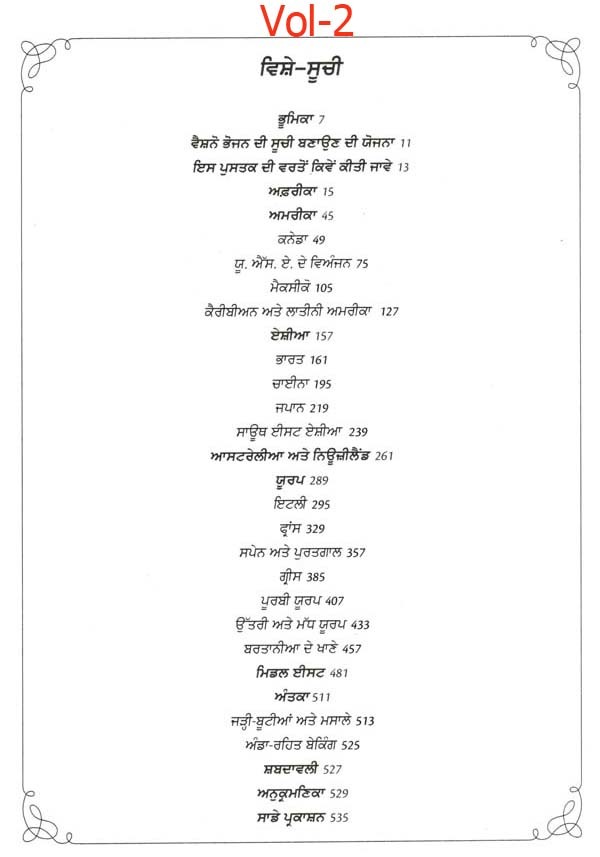 Vol-2
ਵਿਸ਼ੇ-ਸੂਚੀ
ਭੂਮਿਕਾ 7
ਵੈਸ਼ਨੋ ਭੋਜਨ ਦੀ ਸੂਚੀ ਬਣਾਉਣ ਦੀ ਯੋਜਨਾ 11
ਇਸ ਪੁਸਤਕ ਦੀ ਵਰਤੋਂ ਕਿਵੇਂ ਕੀਤੀ ਜਾਵੇ 13
ਅਫ਼ਰੀਕਾ 15
ਅਮਰੀਕਾ 45
ਕਨੇਡਾ 49
ਯੂ. ਐੱਸ. ਏ. ਦੇ ਵਿਅੰਜਨ 75
ਮੈਕਸੀਕੋ 105
ਕੈਰੀਬੀਅਨ ਅਤੇ ਲਾਤੀਨੀ ਅਮਰੀਕਾ 127
ਏਸ਼ੀਆ 157
ਭਾਰਤ 161
ਚਾਈਨਾ 195
ਜਪਾਨ 219
ਸਾਊਥ ਈਸਟ ਏਸ਼ੀਆ 239
ਆਸਟਰੇਲੀਆ ਅਤੇ ਨਿਊਜ਼ੀਲੈਂਡ 261
ਯੂਰਪ 289
ਇਟਲੀ 295
ਫ੍ਰਾਂਸ 329
ਸਪੇਨ ਅਤੇ ਪੁਰਤਗਾਲ 357
ਗ੍ਰੀਸ 385
ਪੂਰਬੀ ਯੂਰਪ 407
ਉੱਤਰੀ ਅਤੇ ਮੱਧ ਯੂਰਪ 433
ਬਰਤਾਨੀਆ ਦੇ ਖਾਣੇ 457
ਮਿਡਲ ਈਸਟ 481
ਅੰਤਕਾ 511
ਜੜ੍ਹੀ-ਬੂਟੀਆਂ ਅਤੇ ਮਸਾਲੇ 513
ਅੰਡਾ-ਰਹਿਤ ਬੇਕਿੰਗ 525
ਸ਼ਬਦਾਵਲੀ 527
ਅਨੁਕ੍ਰਮਣਿਕਾ 529
ਸਾਡੇ ਪ੍ਰਕਾਸ਼ਨ 535